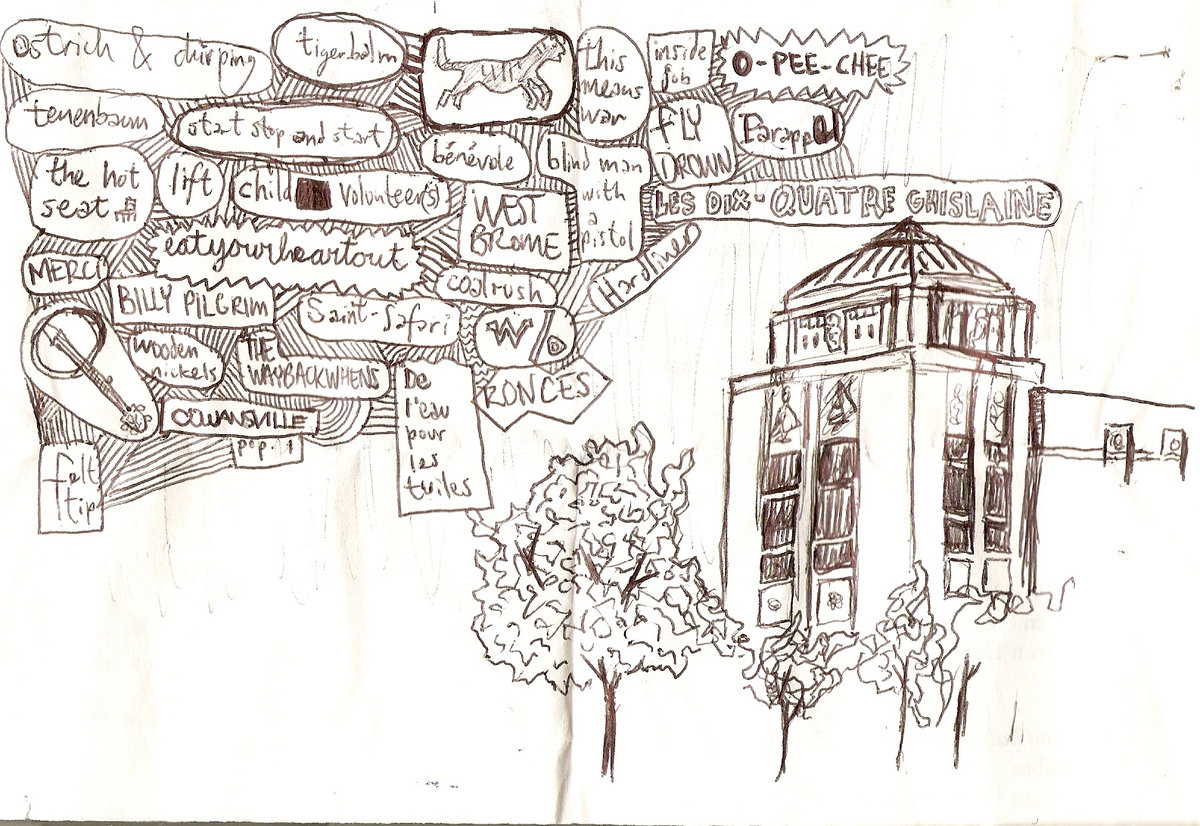 ostrich & chirping
tiger balm
this
means
war
inside
job
O-PEE-CHEE
tenenbaum
start stop and start
bénévole
blind man
with
a
pistol
FLY
DROWN
Parappa
the hot
seat
lift
child volunteer(s)
WEST
BROME
LES DIX-QUATRE GHISLAINE
eatyourheartout
MERCI
coalrush
Hardliner
BILLY PILGRIM
Saint-Safari
W
wooden
nickels
THE
WAYBACKWHENS
De
l'eau
pour
les
tuiles
RONCES
COWANSVILLE
pop. 1
felt
tip